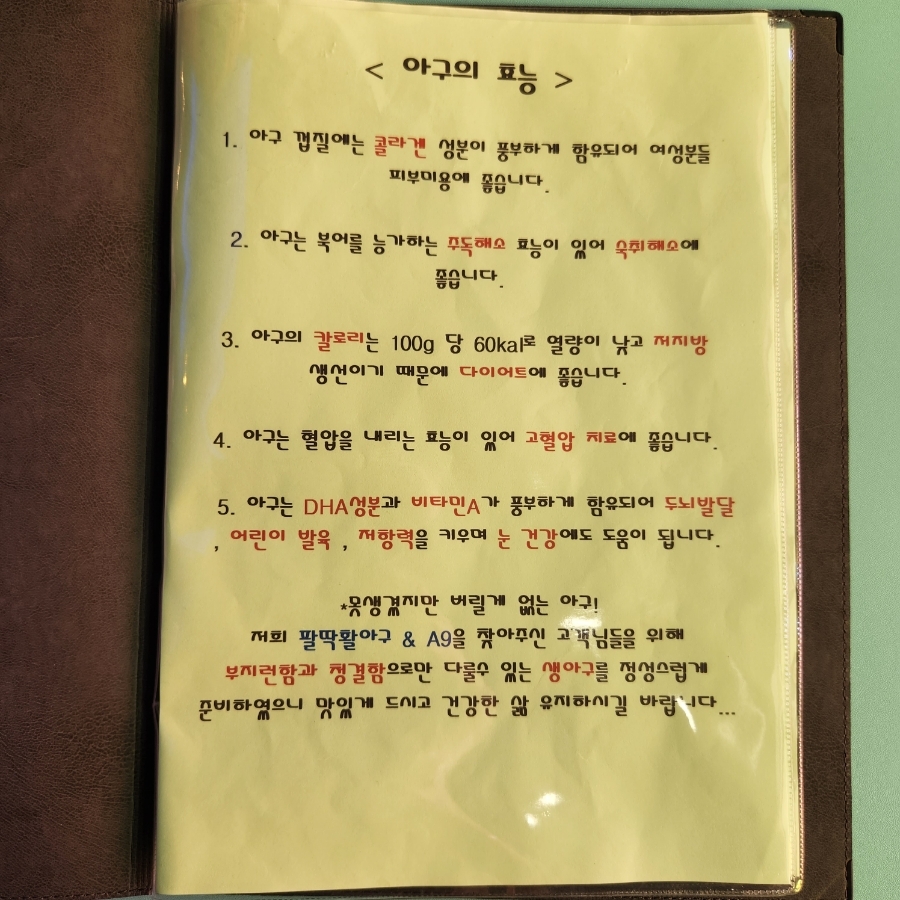 < 아구의 효능 >
1. 아구 껍질에는 콜라겐 성분이 풍부하게 함유되어 여성분들
피부미용에 좋습니다.
2. 아구는 북어를 능가하는 주독해소 효능이 있어 숙취해소에
좋습니다.
3. 아구의 칼로리는 100g 당 60kal로 열량이 낮고 저지방
생선이기 때문에 다이어트에 좋습니다.
4. 아구는 혈압을 내리는 효능이 있어 고혈압 치료에 좋습니다.
5. 아구는 DHA성분과 비타민A가 풍부하게 함유되어 두뇌발달
, 어린이 발육 , 저항력을 키우며 눈 건강에도 도움이 됩니다.
*못생겼지만 버릴게 없는 아구!
저희 팔딱활아구 & A9을 찾아주신 고객님들을 위해
부지런함과 청결함으로만 다룰수 있는 생아구를 정성스럽게
준비하였으니 맛있게 드시고 건강한 삶 유지하시길 바랍니다...